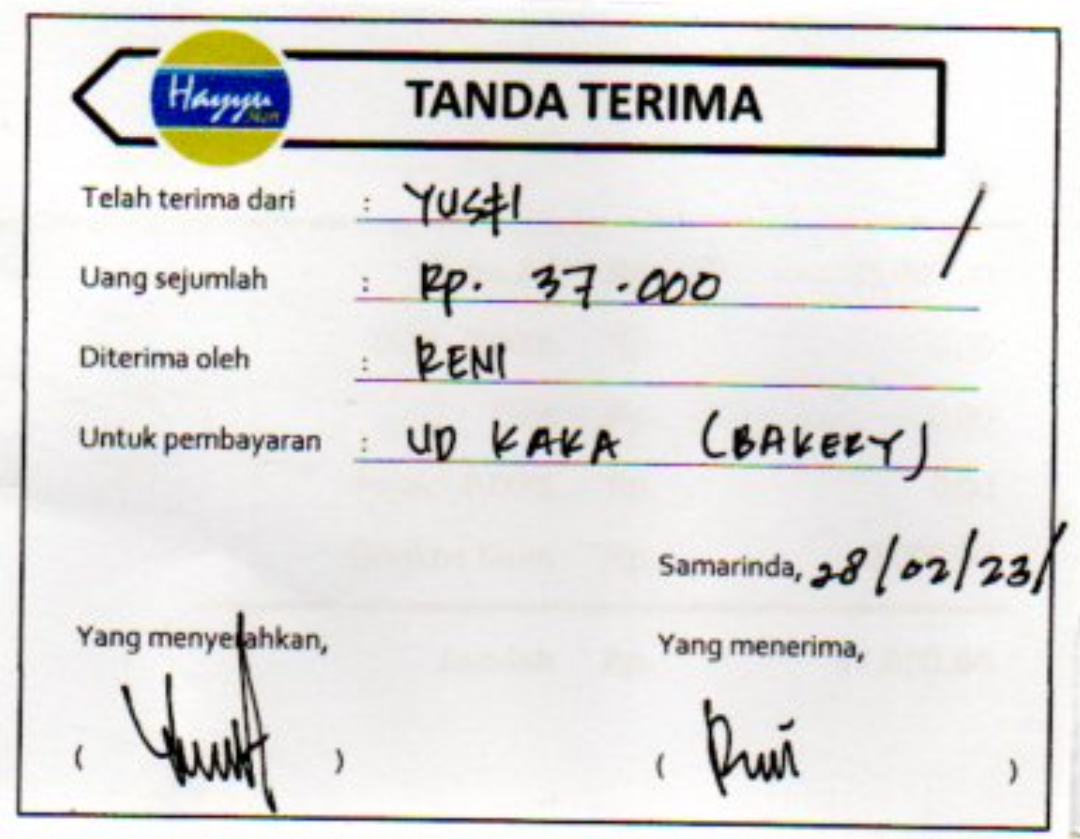 Hayyu
TANDA TERIMA
Telah terima dari : YUSFI
Uang sejumlah : Rp. 37.000
Diterima oleh : RENI
Untuk pembayaran : UD KAKA (BAKERY)
Samarinda, 28/02/23/
Yang menyerahkan, Yang menerima,
( ) ( Reni )